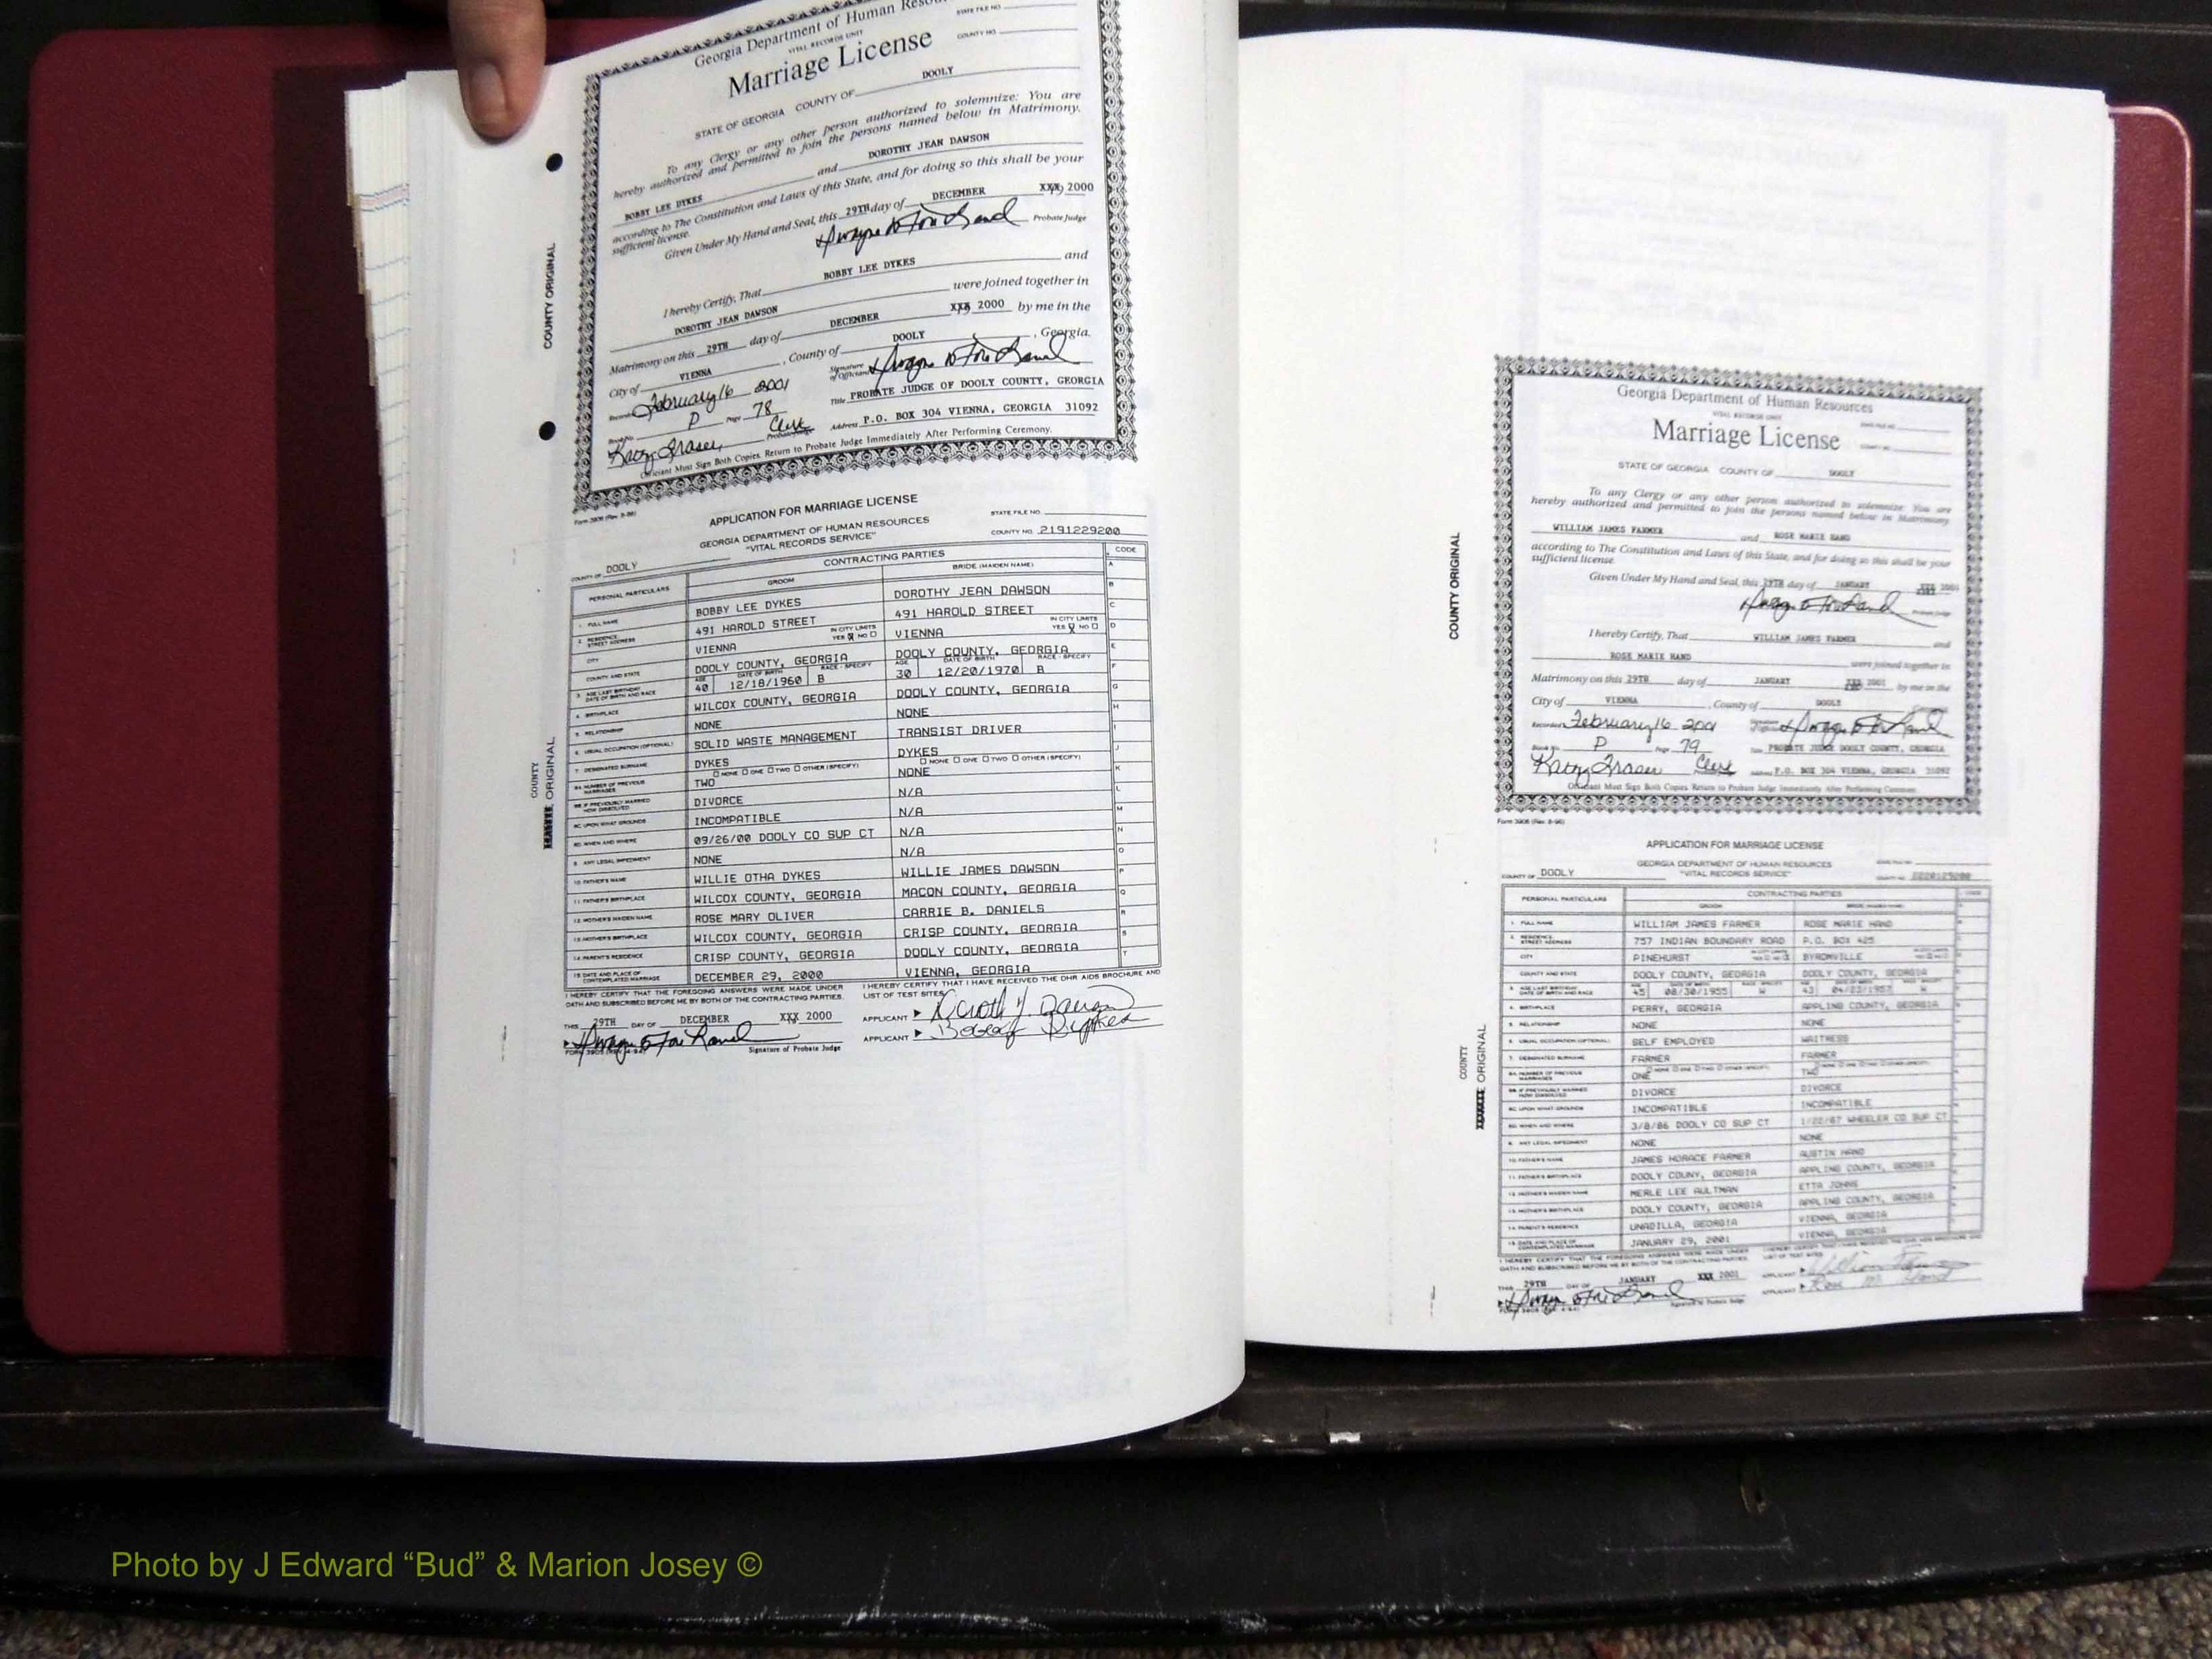 Georgia Department of Human
VITAL RECORDS UNIT
STATE FILE NO.
COUNTY NO.
Marriage License
STATE OF GEORGIA COUNTY OF DOOLY
To any Clergy or any other person authorized to solemnize: You are
hereby authorized and permitted to join the persons named below in Matrimony.
BOBBY LEE DYKES and DOROTHY JEAN DAWSON
according to The Constitution and Laws of this State, and for doing so this shall be your
sufficient license.
Given Under My Hand and Seal, this 29TH day of DECEMBER XXX 2000
Probate Judge
I hereby Certify, That BOBBY LEE DYKES and
DOROTHY JEAN DAWSON were joined together in
Matrimony on this 29TH day of DECEMBER XXX 2000 by me in the
City of VIENNA, County of DOOLY, Georgia.
Recorded February 16 2001 Signature of Officiant
Book No. P Page 78 Title PROBATE JUDGE OF DOOLY COUNTY, GEORGIA
Kathy Fraser, Clerk Probate Judge Address P.O. BOX 304 VIENNA, GEORGIA 31092
Officiant Must Sign Both Copies. Return to Probate Judge Immediately After Performing Ceremony.
COUNTY ORIGINAL
APPLICATION FOR MARRIAGE LICENSE
GEORGIA DEPARTMENT OF HUMAN RESOURCES
"VITAL RECORDS SERVICE"
STATE FILE NO.
COUNTY NO. 2191229200
COUNTY OF DOOLY
PERSONAL PARTICULARS CONTRACTING PARTIES CODE
GROOM BRIDE (MAIDEN NAME)
1. FULL NAME BOBBY LEE DYKES DOROTHY JEAN DAWSON
2. RESIDENCE STREET ADDRESS 491 HAROLD STREET 491 HAROLD STREET
CITY VIENNA IN CITY LIMITS YES NO VIENNA IN CITY LIMITS YES NO
COUNTY AND STATE DOOLY COUNTY, GEORGIA DOOLY COUNTY, GEORGIA
3. AGE LAST BIRTHDAY DATE OF BIRTH AND RACE AGE 40 DATE OF BIRTH 12/18/1960 RACE - SPECIFY B AGE 30 DATE OF BIRTH 12/20/1970 RACE - SPECIFY B
4. BIRTHPLACE WILCOX COUNTY, GEORGIA DOOLY COUNTY, GEORGIA
5. RELATIONSHIP NONE NONE
6. USUAL OCCUPATION (OPTIONAL) SOLID WASTE MANAGEMENT TRANSIST DRIVER
7. DESIGNATED SURNAME DYKES DYKES
8A. NUMBER OF PREVIOUS MARRIAGES NONE ONE TWO OTHER (SPECIFY) TWO NONE ONE TWO OTHER (SPECIFY) NONE
8B. IF PREVIOUSLY MARRIED HOW DISSOLVED DIVORCE N/A
8C. UPON WHAT GROUNDS INCOMPATIBLE N/A
8D. WHEN AND WHERE 09/26/00 DOOLY CO SUP CT N/A
9. ANY LEGAL IMPEDIMENT NONE N/A
10. FATHER'S NAME WILLIE OTHA DYKES WILLIE JAMES DAWSON
11. FATHER'S BIRTHPLACE WILCOX COUNTY, GEORGIA MACON COUNTY, GEORGIA
12. MOTHER'S MAIDEN NAME ROSE MARY OLIVER CARRIE B. DANIELS
13. MOTHER'S BIRTHPLACE WILCOX COUNTY, GEORGIA CRISP COUNTY, GEORGIA
14. PARENT'S RESIDENCE CRISP COUNTY, GEORGIA DOOLY COUNTY, GEORGIA
15. DATE AND PLACE OF CONTEMPLATED MARRIAGE DECEMBER 29, 2000 VIENNA, GEORGIA
I HEREBY CERTIFY THAT THE FOREGOING ANSWERS WERE MADE UNDER
OATH AND SUBSCRIBED BEFORE ME BY BOTH OF THE CONTRACTING PARTIES.
I HEREBY CERTIFY THAT I HAVE RECEIVED THE DHR AIDS BROCHURE AND
LIST OF TEST SITES
THIS 29TH DAY OF DECEMBER XXX 2000
APPLICANT
APPLICANT
Signature of Probate Judge
COUNTY
ORIGINAL
Georgia Department of Human Resources
VITAL RECORDS UNIT
Marriage License
STATE OF GEORGIA COUNTY OF DOOLY
To any Clergy or any other person authorized to solemnize: You are
hereby authorized and permitted to join the persons named below in Matrimony
WILLIAM JAMES FARMER and ROSE MARIE HAND
according to The Constitution and Laws of this State, and for doing so this shall be your
sufficient license.
Given Under My Hand and Seal, this 29TH day of JANUARY XXX 2001
Probate Judge
I hereby Certify, That WILLIAM JAMES FARMER and
ROSE MARIE HAND were joined together in
Matrimony on this 29TH day of JANUARY XXX 2001 by me in the
City of VIENNA, County of DOOLY
Recorded February 16 2001
Book No. P Page 79 Title PROBATE JUDGE DOOLY COUNTY, GEORGIA
Kathy Fraser Clerk Address P.O. BOX 304 VIENNA, GEORGIA 31092
Officiant Must Sign Both Copies. Return to Probate Judge Immediately After Performing Ceremony.
Form 3906 (Rev. 8-96)
COUNTY ORIGINAL
APPLICATION FOR MARRIAGE LICENSE
GEORGIA DEPARTMENT OF HUMAN RESOURCES
"VITAL RECORDS SERVICE"
COUNTY OF DOOLY
PERSONAL PARTICULARS CONTRACTING PARTIES
GROOM
1. FULL NAME WILLIAM JAMES FARMER ROSE MARIE HAND
2. RESIDENCE STREET ADDRESS 757 INDIAN BOUNDARY ROAD P.O. BOX 425
CITY PINEHURST BYROMVILLE
COUNTY AND STATE DOOLY COUNTY, GEORGIA DOOLY COUNTY, GEORGIA
3. AGE LAST BIRTHDAY DATE OF BIRTH AND RACE 45 08/30/1955 W 43 W
4. BIRTHPLACE PERRY, GEORGIA APPLING COUNTY, GEORGIA
5. RELATIONSHIP NONE NONE
6. USUAL OCCUPATION (OPTIONAL) SELF EMPLOYED WAITRESS
7. DESIGNATED SURNAME FARMER FARMER
8A. NUMBER OF PREVIOUS MARRIAGES ONE TWO
8B. IF PREVIOUSLY MARRIED HOW DISSOLVED DIVORCE DIVORCE
8C. UPON WHAT GROUNDS INCOMPATIBLE INCOMPATIBLE
8D. WHEN AND WHERE 3/8/86 DOOLY CO SUP CT 1/22/87 WHEELER CO SUP CT
9. ANY LEGAL IMPEDIMENT NONE NONE
10. FATHER'S NAME JAMES HORACE FARMER AUSTIN HAND
11. FATHER'S BIRTHPLACE DOOLY COUNY, GEORGIA APPLING COUNTY, GEORGIA
12. MOTHER'S MAIDEN NAME MERLE LEE AULTMAN ETTA JOHNS
13. MOTHER'S BIRTHPLACE DOOLY COUNTY, GEORGIA APPLING COUNTY, GEORGIA
14. PARENT'S RESIDENCE UNADILLA, GEORGIA VIENNA, GEORGIA
15. DATE AND PLACE OF CONTEMPLATED MARRIAGE JANUARY 29, 2001 VIENNA, GEORGIA
I HEREBY CERTIFY THAT THE FOREGOING ANSWERS WERE MADE UNDER
OATH AND SUBSCRIBED BEFORE ME BY BOTH OF THE CONTRACTING PARTIES.
THIS 29TH DAY OF JANUARY XXX 2001
APPLICANT
APPLICANT Rose M Hand
Signature of Probate Judge
COUNTY
ORIGINAL
Photo by J Edward “Bud” & Marion Josey ©